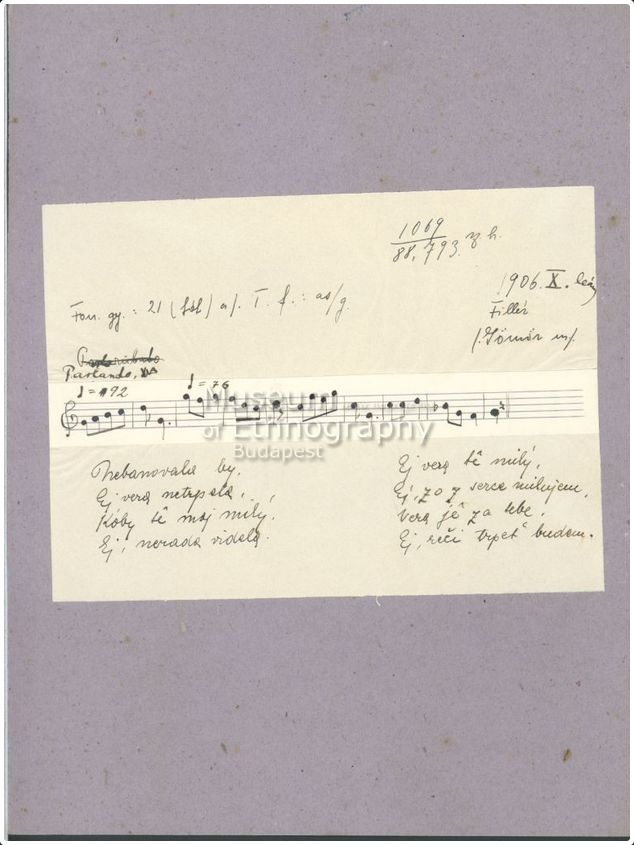 1069
88,793. z h.
1906. X. leány
Fillér
/.Gömör m/.
Fon. gy.: 21 (fél) a/. T. f.: as/g.
Parlando,
♩ = 92
♩ = 76
Museum
of Ethnography
Budapest
Nebanovala by,
Ej vera netrpela,
Kóby tě moj milý,
Ej, nerada videla.
Ej vera tě milý,
Ej, zo z serce milujem,
Vera jě za tebe,
Ej, reči trpeť budem.